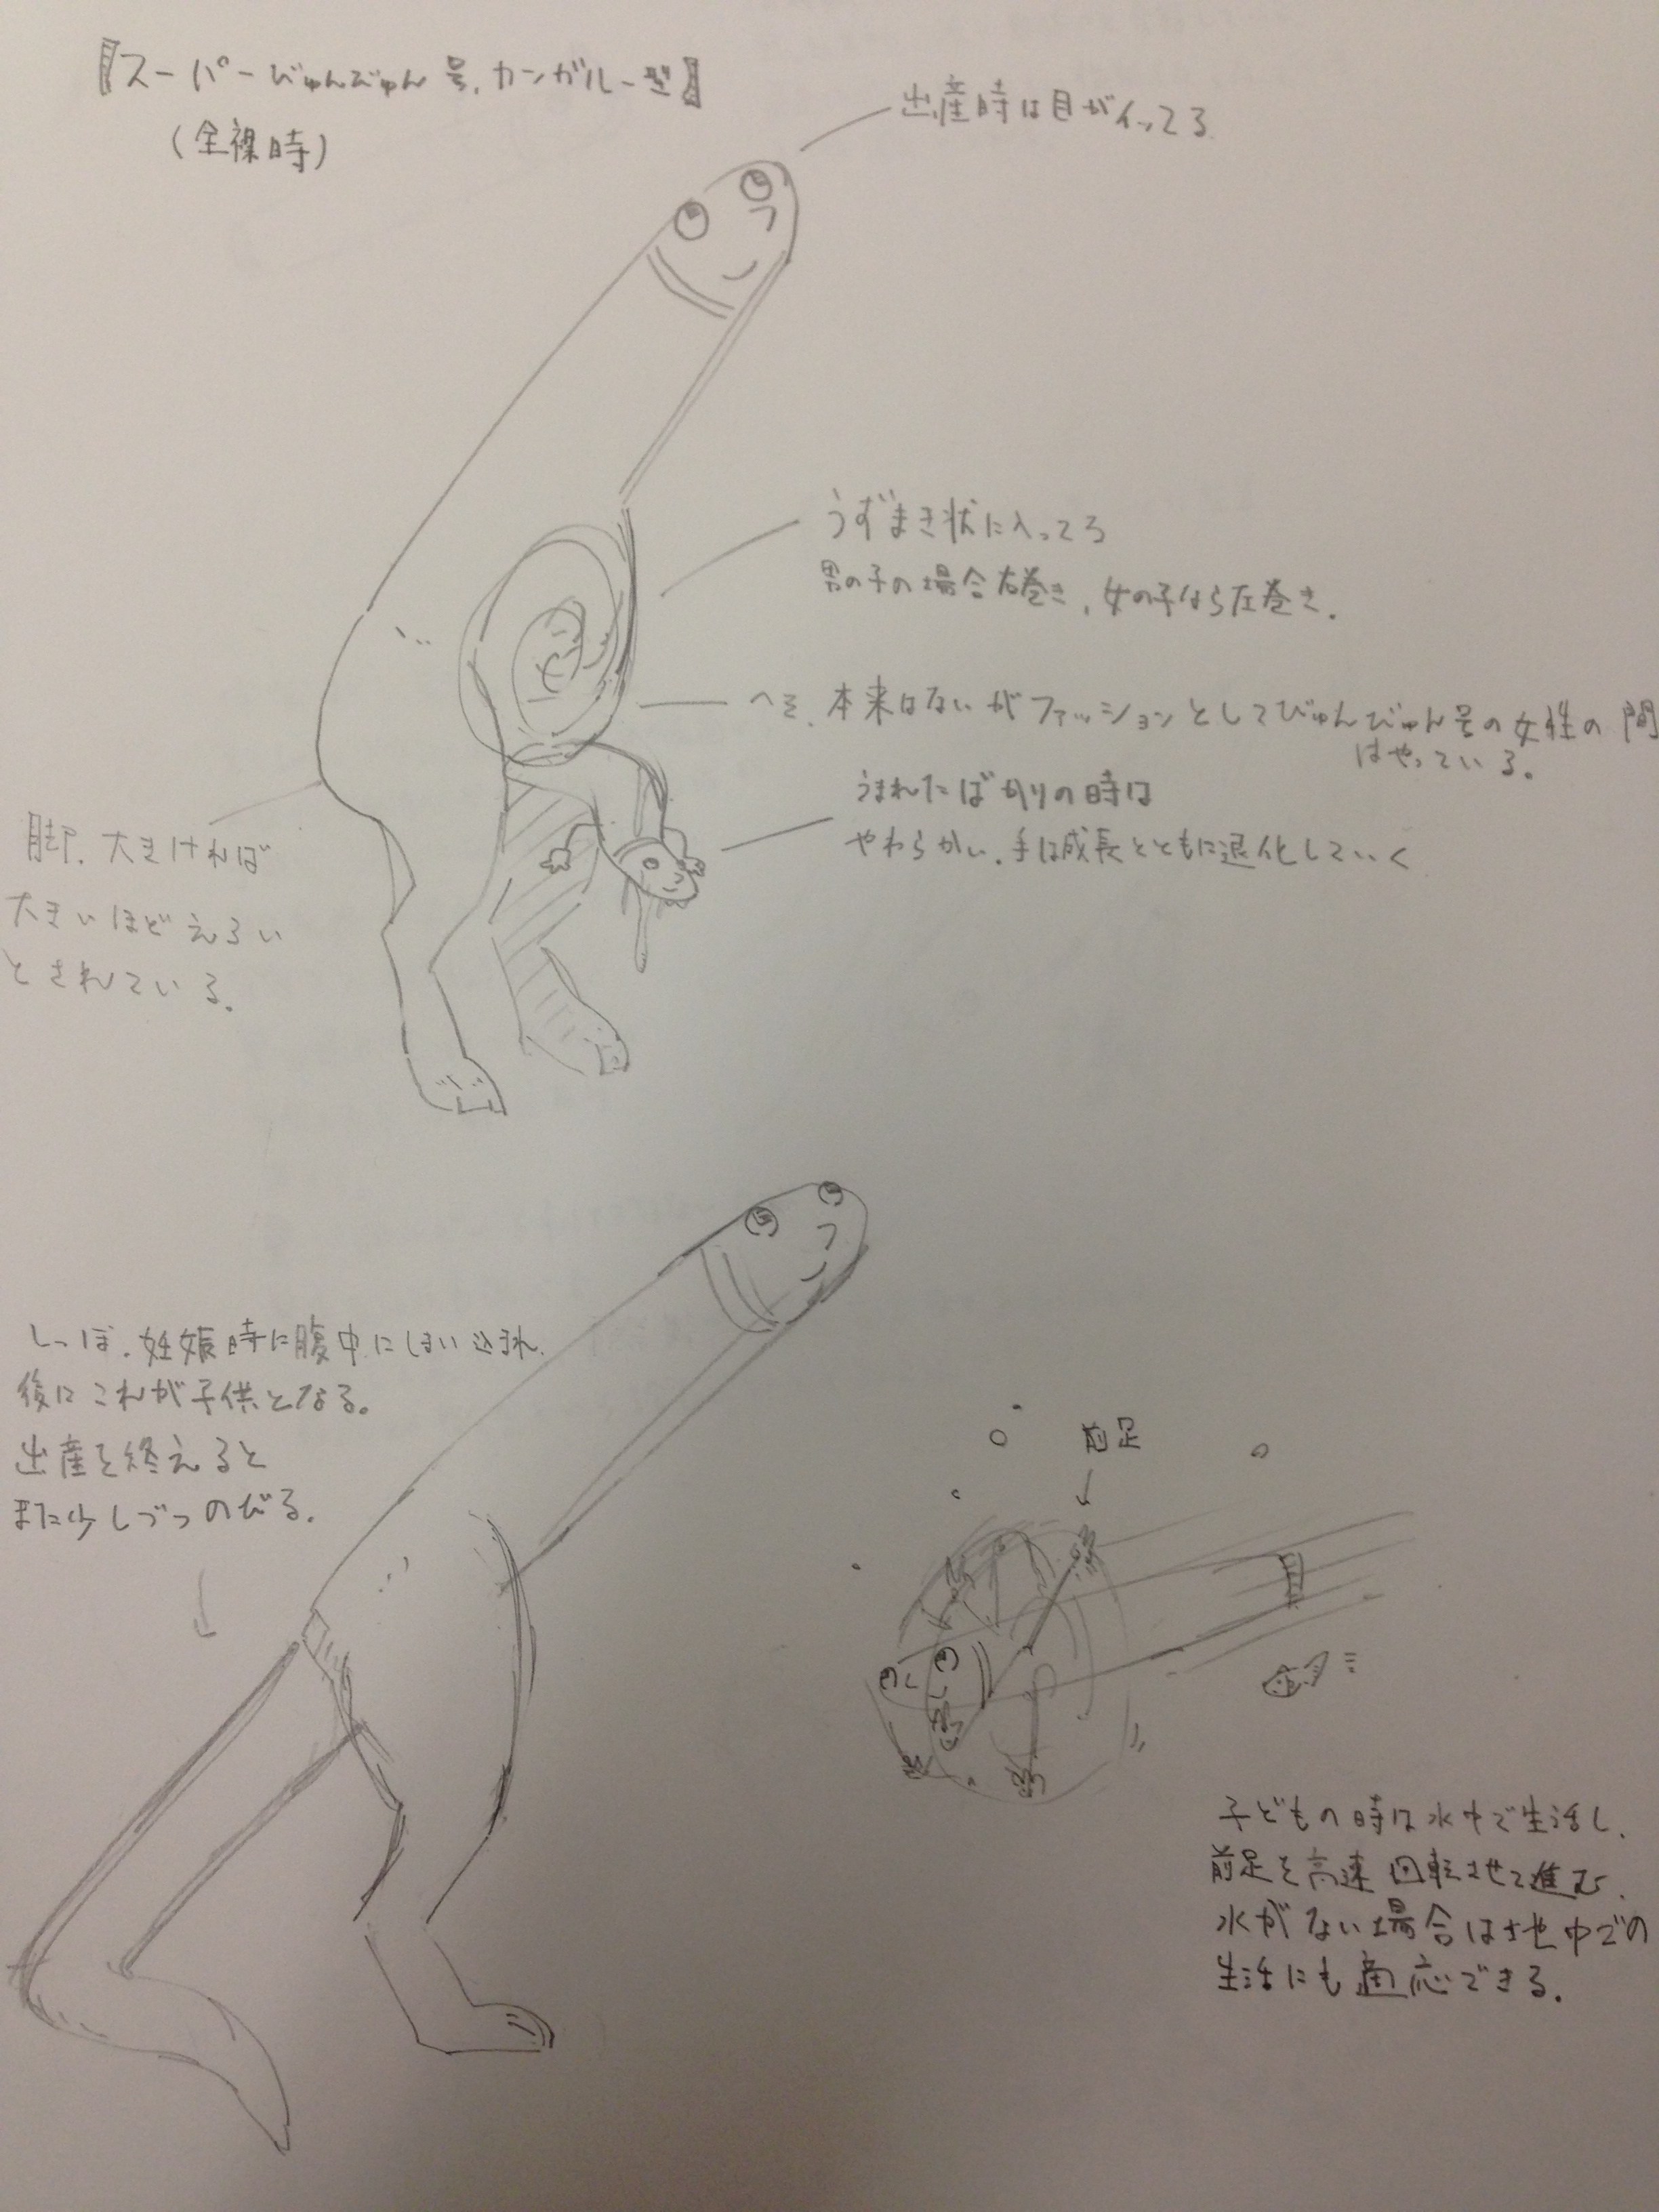 『スーパーびゅんびゅん号.カンガルー型』
(全裸時)
出産時は目がイってる
うずまき状に入ってる
男の子の場合右巻き、女の子なら左巻き.
へそ.本来はないがファッションとしてびゅんびゅん号の女性の間
はやっている。
うまれたばかりの時は
やわらかい.手は成長とともに退化していく
脚.大きければ
大きいほどえろい
とされている。
しっぽ.妊娠時に腹中にしまい込まれ
後にこれが子供となる。
出産を終えると
また少しづつのびる.
前足
子どもの時は水中で生活し、
前足を高速回転させて進む.
水がない場合は土地中での
生活にも適応できる.